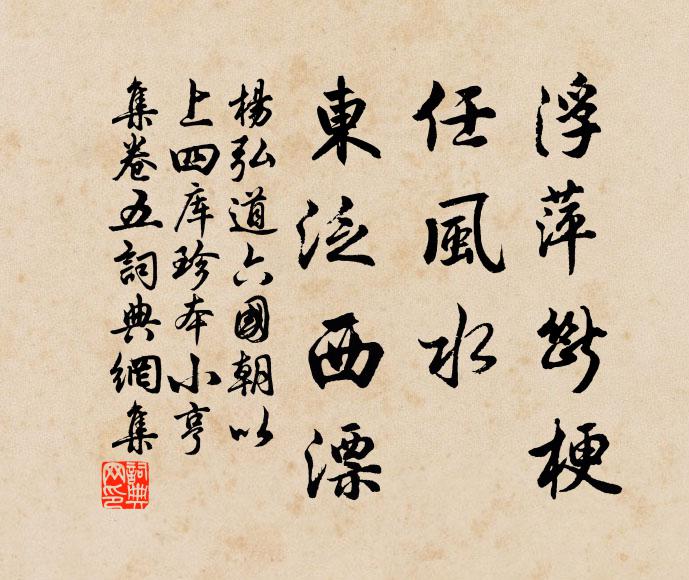 浮萍断梗
任風水
東泛西漂
楊弘道六國朝以
上四库珍本小亨
集卷五詞典網集
詞典網印